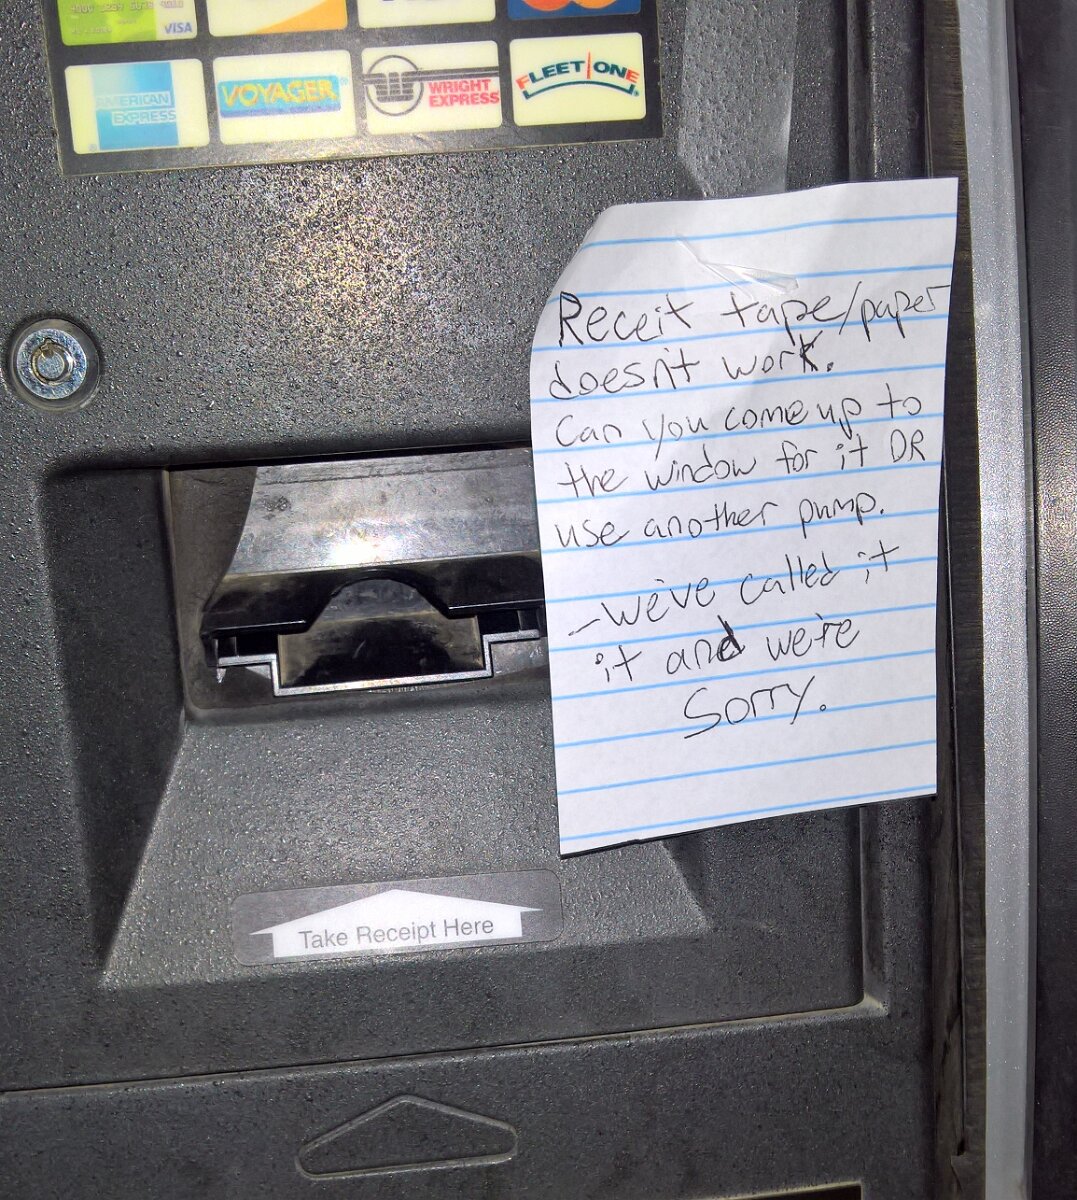 VISA
AMERICAN
EXPRESS
VOYAGER
WRIGHT
EXPRESS
FLEET ONE
Receit tape/paper
doesn't work.
Can you come up to
the window for it OR
use another pump.
- we've called it
it and we're
Sorry.
Take Receipt Here